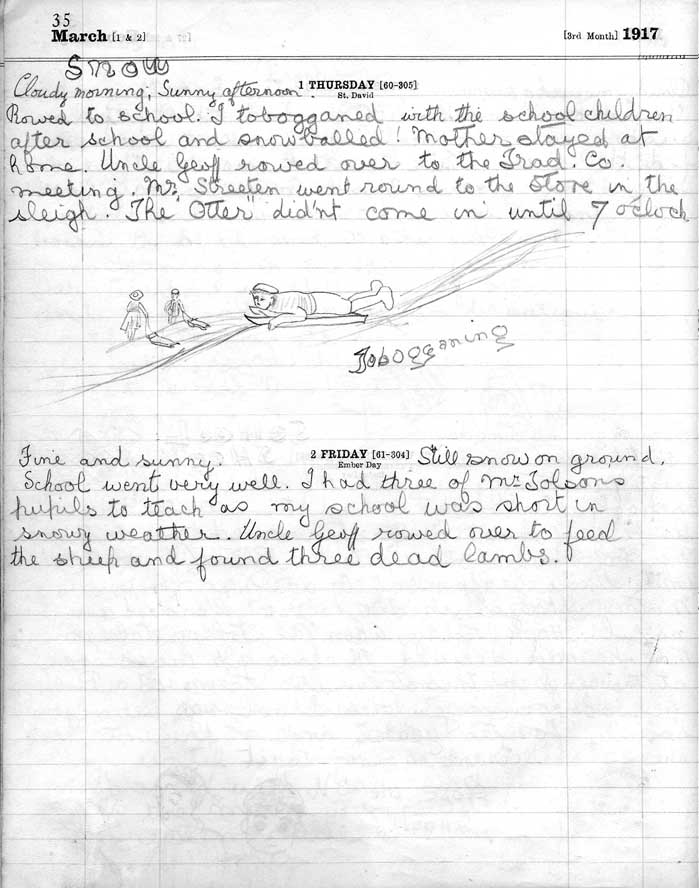 35
March [1 & 2] [3rd Month] 1917
Snow
Cloudy morning; Sunny afternoon. 1 THURSDAY [60-305]
St. David
Rowed to school. I tobogganed with the school children
after school and snowballed! Mother stayed at
home. Uncle Geoff rowed over to the Trad. Co.
meeting. Mr. Streeten went round to the Store in the
sleigh. The "Otter" did'nt come in until 7 o'clock
Tobogganing
2 FRIDAY [61-304]
Ember Day
Fine and sunny. Still snow on ground.
School went very well. I had three of Mr. Tolsons
pupils to teach as my school was short in
snowy weather. Uncle Geoff rowed over to feed
the sheep and found three dead lambs.